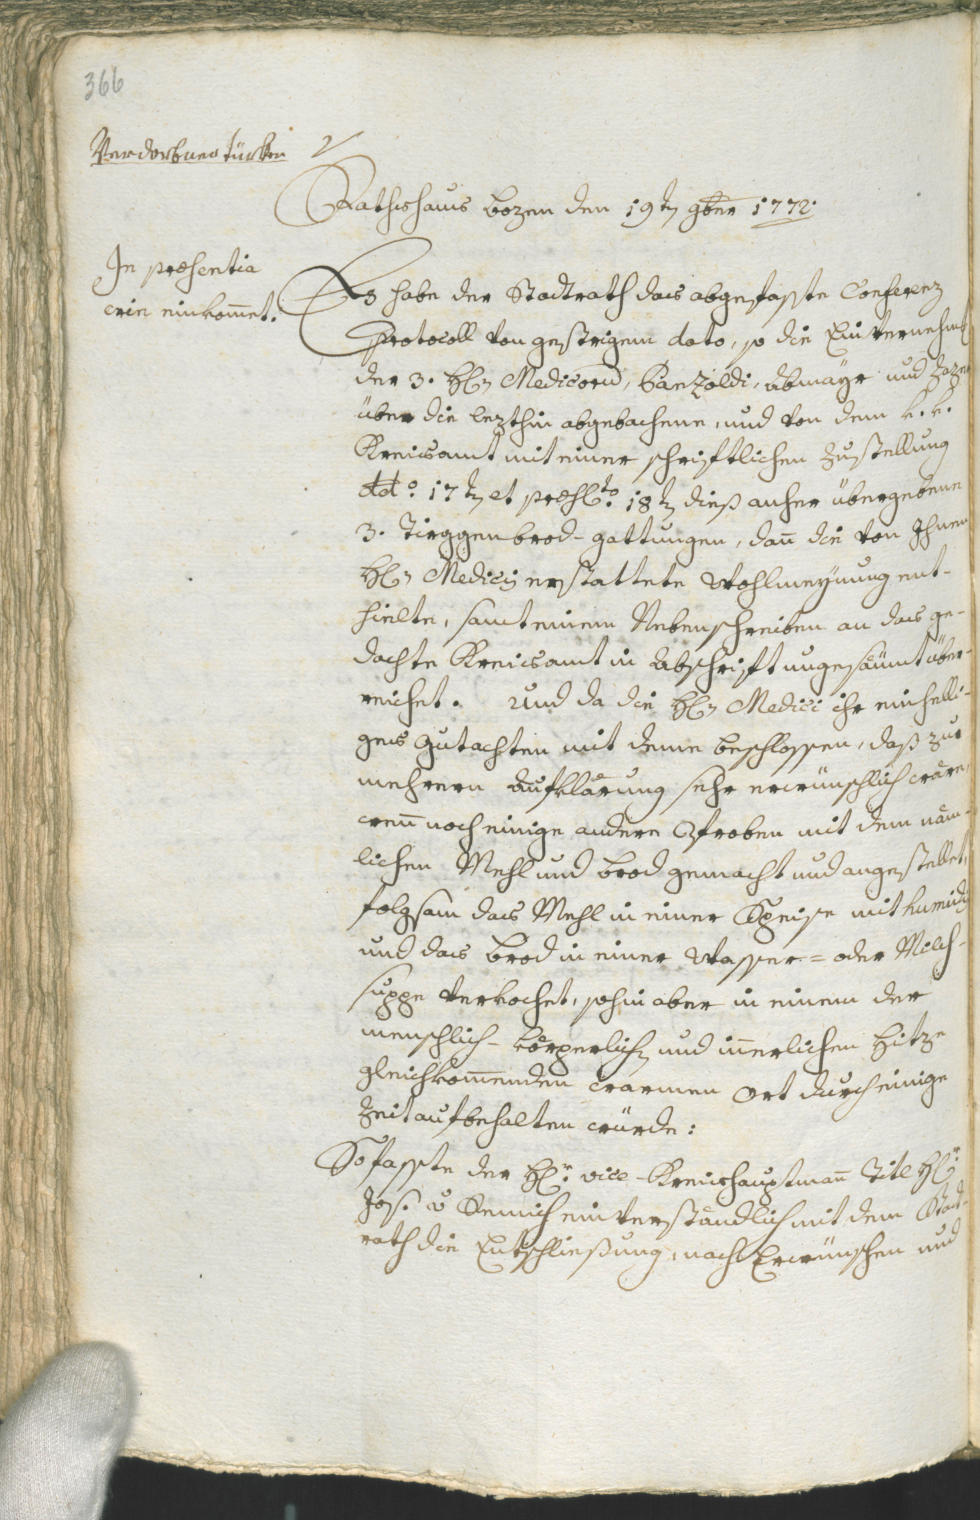 366
Verdorbner Türken
Rathshaus Bozen den 19t 9ber 1772.
In præsentia
wie einkom̄et.
Es habe der Stadtrath das abgefasste Conferenz
Protocoll von gestrigem dato, so die Einvernehm̄
der 3. H. Medicorum, Panzoldi, Abmayr und
über die lezthin abgebachene, und von dem k. k.
Kreisamt mit einer schriftlichen Zustellung
ddo. 17t et præs. 18t dieß anher übergebene
3. Tirggenbrod-gattungen, dan̄ die von Ihnen
H. Medicis erstattete Wohlmeynung ent-
hielte, samt einem Nebenschreiben an das ge-
dachte Kreisamt in Abschrift ungesäumt über-
reichet. Und da die H. Medici ihr einhelli-
ges Gutachten mit deme beschlossen, daß zur
mehrern Aufklärung sehr erwünschlich wäre,
wen̄ noch einige andere Proben mit dem näm-
lichen Mehl und Brod gemacht und angestellet,
folgsam das Mehl in einer Speise mit humidis
und das Brod in einer Wasser= oder Milch-
suppe verkochet, sohin aber in einem der
menschlich-körperlich und in̄erlichen Hitze
gleichkom̄enden warmen Ort durch einige
Zeit aufbehalten würde:
So fasste der H. vice-Kreishauptman̄ Titl H.
Jos. v einverständlich mit dem Stadt-
rath die Entschließung, nach Erwünschen und